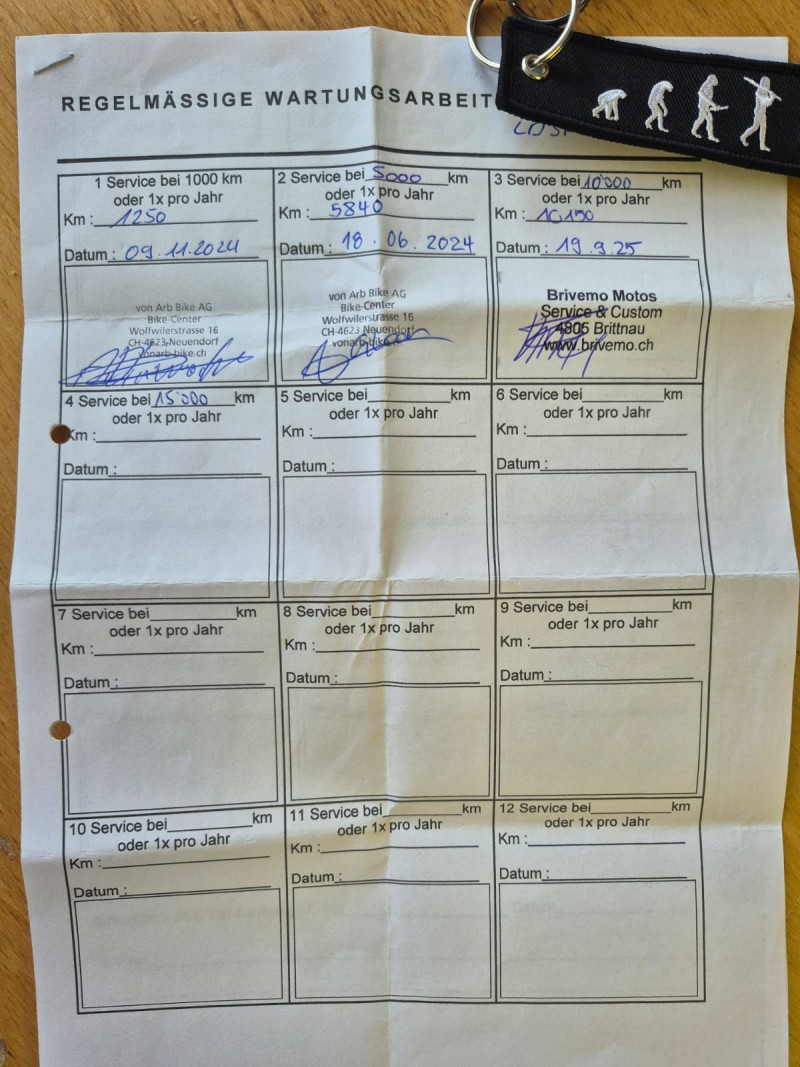 REGELMÄSSIGE WARTUNGSARBEIT
1 Service bei 1000 km
oder 1x pro Jahr
Km : 1250
Datum : 09.11.2024
von Arb Bike AG
Bike-Center
Wolfwilerstrasse 16
CH-4623 Neuendorf
vonarb-bike.ch
2 Service bei 5000 km
oder 1x pro Jahr
Km : 5840
Datum : 18.06.2024
von Arb Bike AG
Bike-Center
Wolfwilerstrasse 16
CH-4623 Neuendorf
vonarb-bike.ch
3 Service bei 10'000 km
oder 1x pro Jahr
Km : 10150
Datum : 19.9.25
Brivemo Motos
Service & Custom
4805 Brittnau
www.brivemo.ch
4 Service bei 15'000 km
oder 1x pro Jahr
Km :
Datum :
5 Service bei km
oder 1x pro Jahr
Km :
Datum :
6 Service bei km
oder 1x pro Jahr
Km :
Datum :
7 Service bei km
oder 1x pro Jahr
Km :
Datum :
8 Service bei km
oder 1x pro Jahr
Km :
Datum :
9 Service bei km
oder 1x pro Jahr
Km :
Datum :
10 Service bei km
oder 1x pro Jahr
Km :
Datum :
11 Service bei km
oder 1x pro Jahr
Km :
Datum :
12 Service bei km
oder 1x pro Jahr
Km :
Datum :